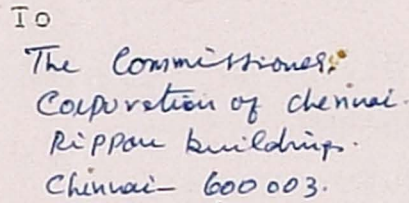 To
The Commissioner,
Corporation of Chennai.
Rippon buildings.
Chennai - 600 003.